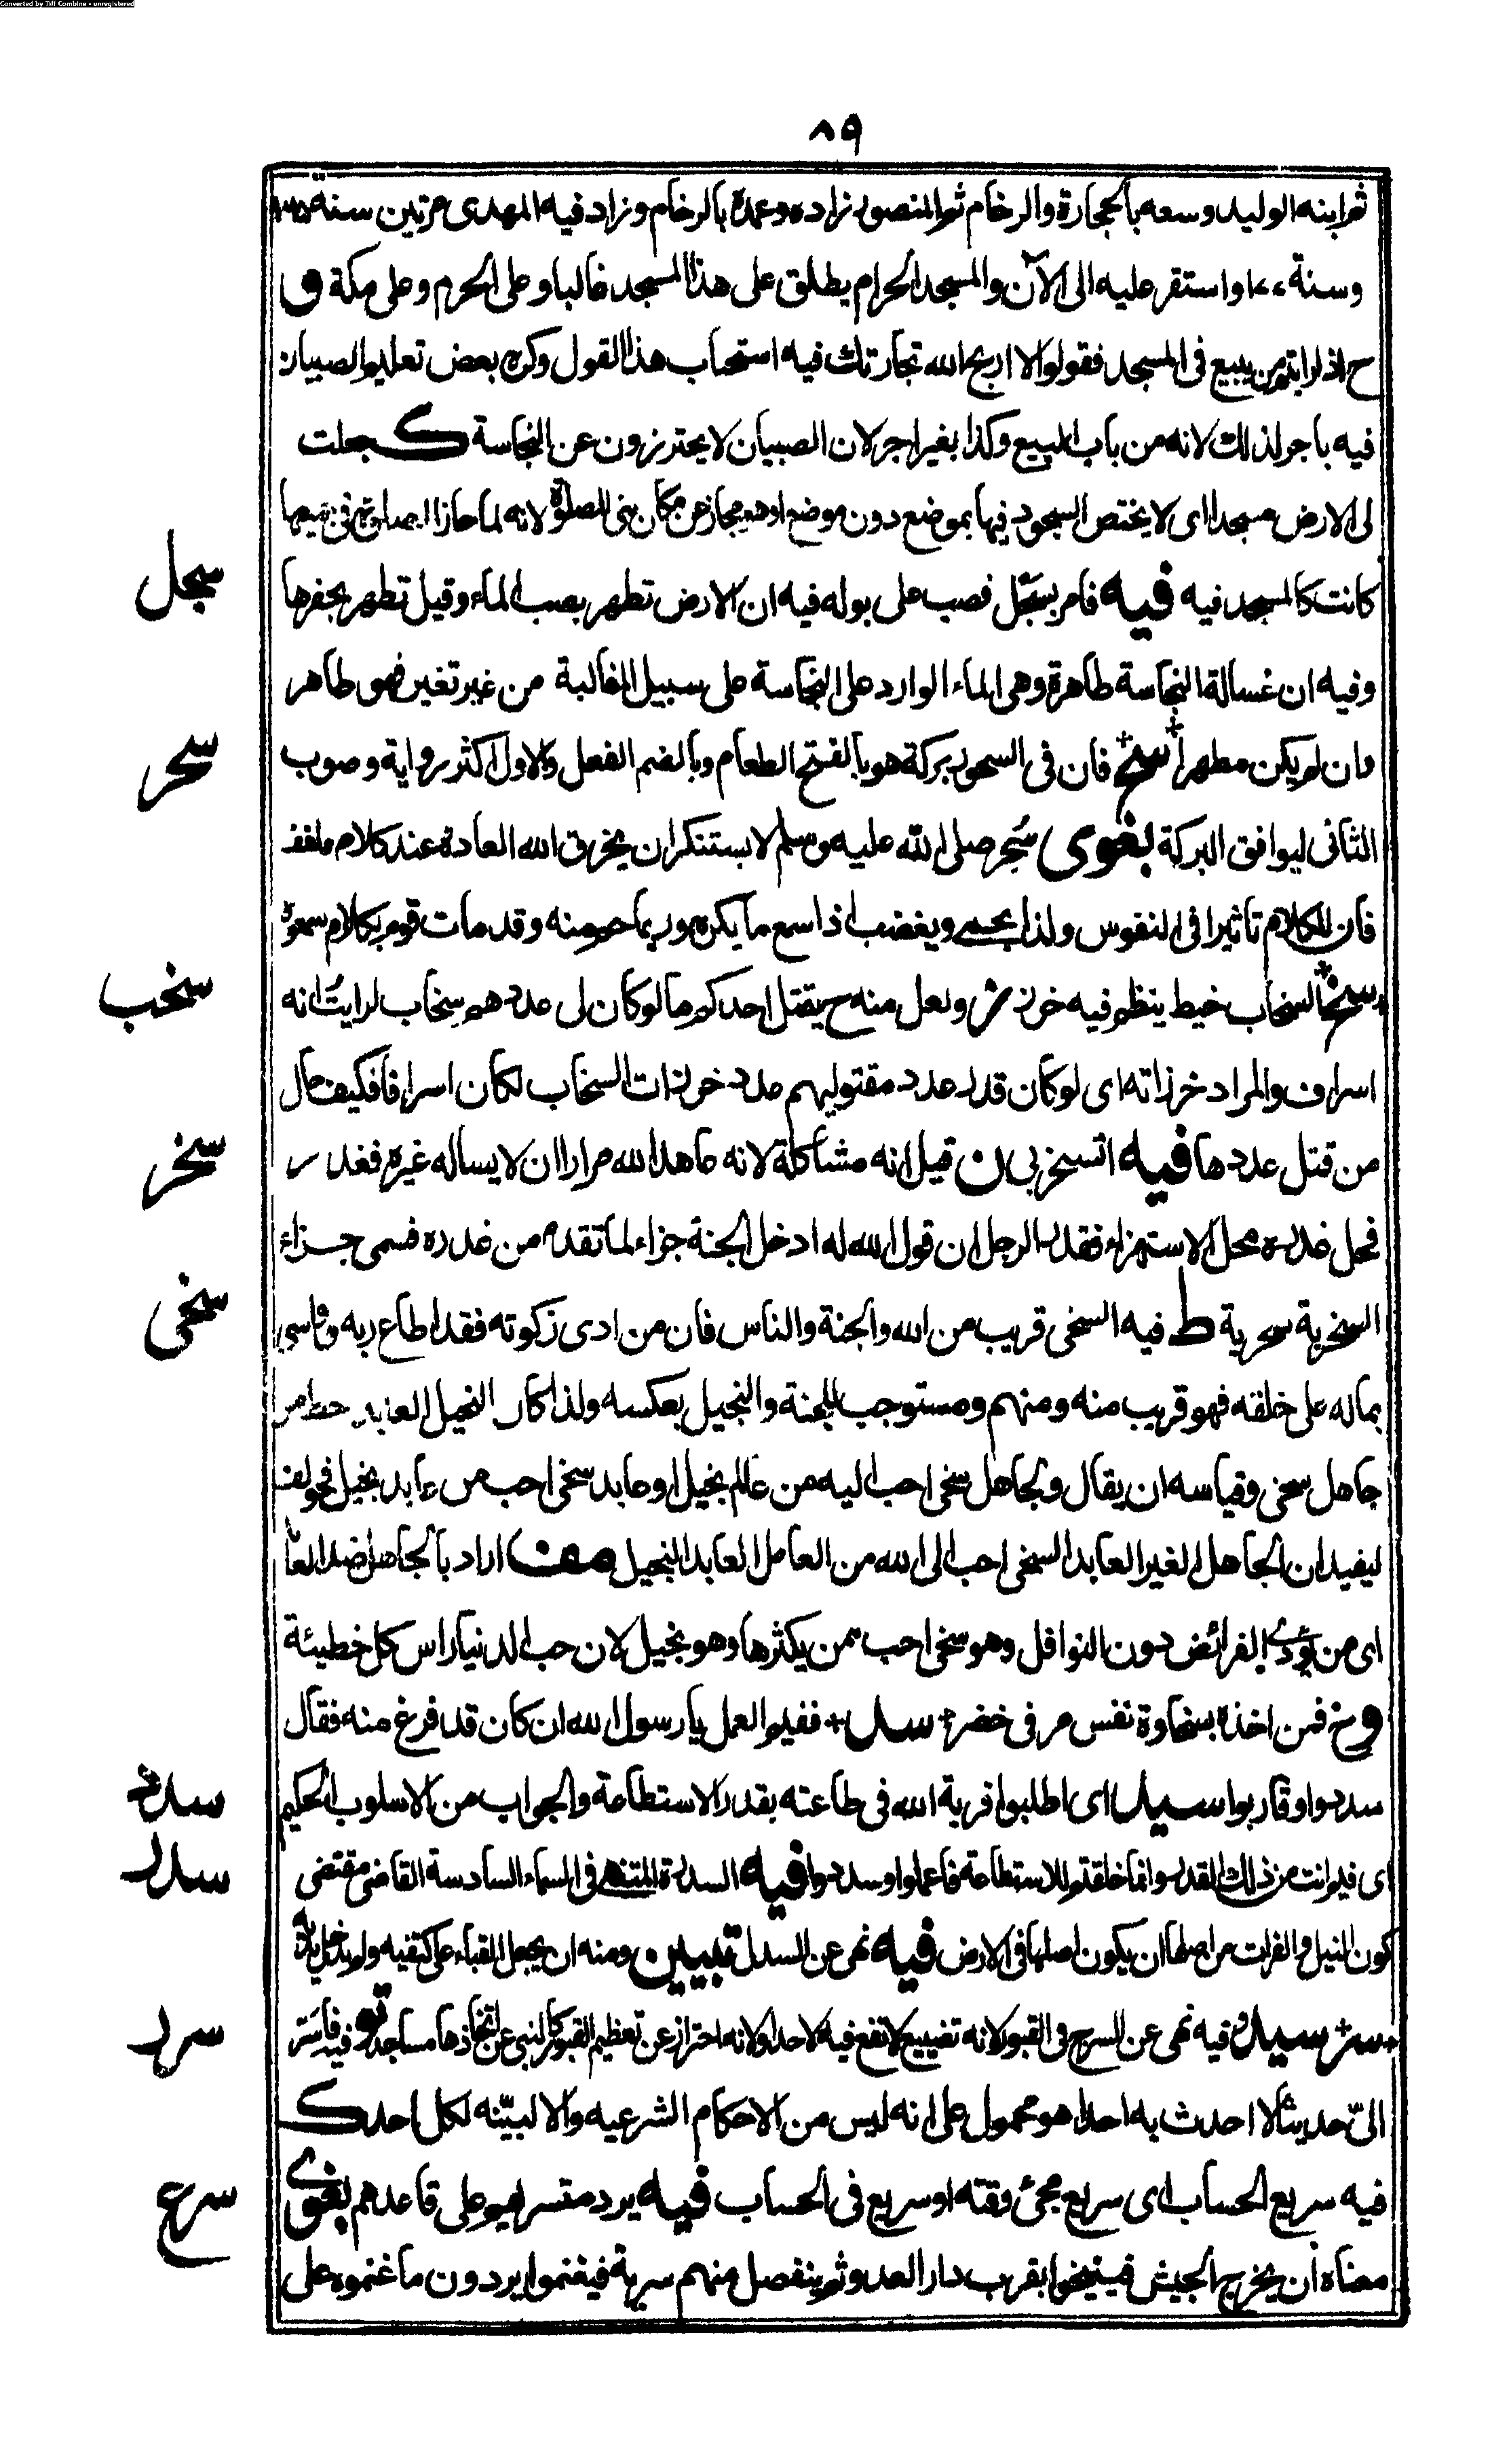 Converted by Tiff Combine - unregistered
٨٩
ثم ابنه الوليد وسعه بالحجارة والرخام ثم المنصور زاده وعمده بالرخام وزاد فيه المهدى مرتين سنة
وسنة واستقر عليه الى الآن والمسجد الحرام يطلق على هذا المسجد غالبا وعلى الحرم وعلى مكة و
ح اذا رايتم من يبيع فى المسجد فقولوا لا اربح الله تجارتك فيه استحباب هذا القول وكره بعض تعليم الصبيان
فيه باجر لذلك لانه من باب البيع وكذا بغير اجر لان الصبيان لا يحترزون عن النجاسة ك جعلت
لى الارض مسجدا اى لا يختص السجود فيها بموضع دون موضع او هو مجاز عن مكان بنى للصلوة لانه لما جاز الصلوة فى جميعها
كانت كالمسجد فيه فيه فامر بسَجْل فصب على بوله فيه ان الارض تطهر بصب الماء وقيل تطهر بحفرها
سجل
وفيه ان غسالة النجاسة طاهرة وهى الماء الوارد على النجاسة على سبيل المغالبة من غير تغير فهو طاهر
وان لم يكن مطهرا سح فان فى السحور بركة هو بالفتح الطعام وبالضم الفعل والاول اكثر رواية وصوب
سحر
الثانى ليوافق البركة بغوى سُحِر صلى الله عليه وسلم لا يستنكر ان يخرق الله العادة عند كلام ملفف
فان للكلام تاثيرا فى النفوس ولذا يحمى ويغضب اذا سمع ما يكره وربما حم منه وقد مات قوم بكلام سمعوه
سخ السخاب خيط ينظم فيه خرز ش ولعل منه ح يقتل احدكم ما لو كان لى عددهم سخاب لرايتُ انه
سخب
اسراف والمراد خرزاته اى لو كان قدر عدد مقتوليهم عدد خرزات السخاب لكان اسرافا فكيف حال
من قتل عددها فيه اتسخر بى ن قيل انه مشاكلة لانه عاهد الله مرارا ان لا يساله غيره فغدر
سخر
فحل غدره محل الاستهزاء فقدر الرجل ان قول الله له ادخل الجنة جزاء لما تقدم من غدره فسمى جزاء
السخرية سخرية ط فيه السخى قريب من الله والجنة والناس فان من ادى زكوته فقد اطاع ربه وواسى
سخى
بماله على خلقه فهو قريب منه ومنهم ومستوجب للجنة والبخيل بعكسه ولذا كان البخيل العابد حط من
جاهل سخى وقياسه ان يقال ولجاهل سخى احب اليه من عالم بخيل او عابد سخى احب من عابد بخيل فخولف
ليفيد ان الجاهل الغير العابد السخى احب الى الله من العامل العابد البخيل مف اراد بالجاهل ضد العابد
اى من يؤدى الفرائض دون النوافل وهو سخى احب ممن يكثرها وهو بخيل لان حب الدنيا راس كل خطيئة
وح فمن اخذه بسخاوة نفس مر فى خضر سد ففيم العمل يا رسول الله ان كان قد فرغ منه فقال
سددوا وقاربوا سيد اى اطلبوا قربة الله فى طاعته بقدر الاستطاعة والجواب من الاسلوب الحكيم
سدد
اى فيم انت من ذلك القدر وانما خلقتم للاستطاعة فاعملوا وسددوا فيه السدرة المنتهى فى السماء السادسة القاضى مقتضى
سدر
كون النيل والفرات من اصلها ان يكون اصلها فى الارض فيه نهى عن السدل تبيين ومنه ان يجعل القباء على كتفيه ولم يدخل يديه
سر سيد فيه نهى عن السرج فى القبور لانه تضييع لا نفع فيه لاحد او لانه احتراز عن تعظيم القبور كالنهى عن اتخاذها مساجد تو فيه فاسَرّ
سرر
الىّ حديثا لا احدث به احدا هو محمول على انه ليس من الاحكام الشرعيه والا لبيّنه لكل احد ك
فيه سريع الحساب اى سريع مجئ وقته او سريع فى الحساب فيه يرد متسريهم على قاعدهم بغوى
سرع
معناه ان يخرج الجيش فينيخوا بقرب دار العدو ثم ينفصل منهم سرية فيغنموا يردون ما غنموه على